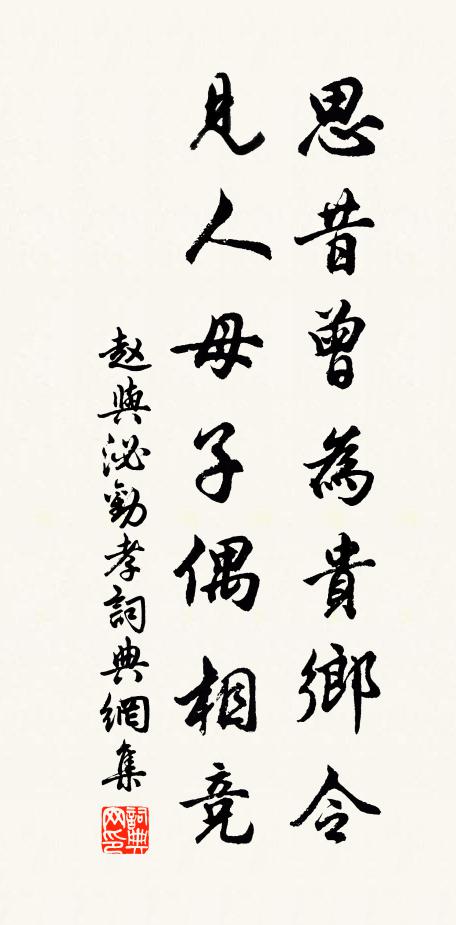 思昔曾為貴鄉令
見人母子偶相競
赵與泌勸孝詞典網集
詞典网印